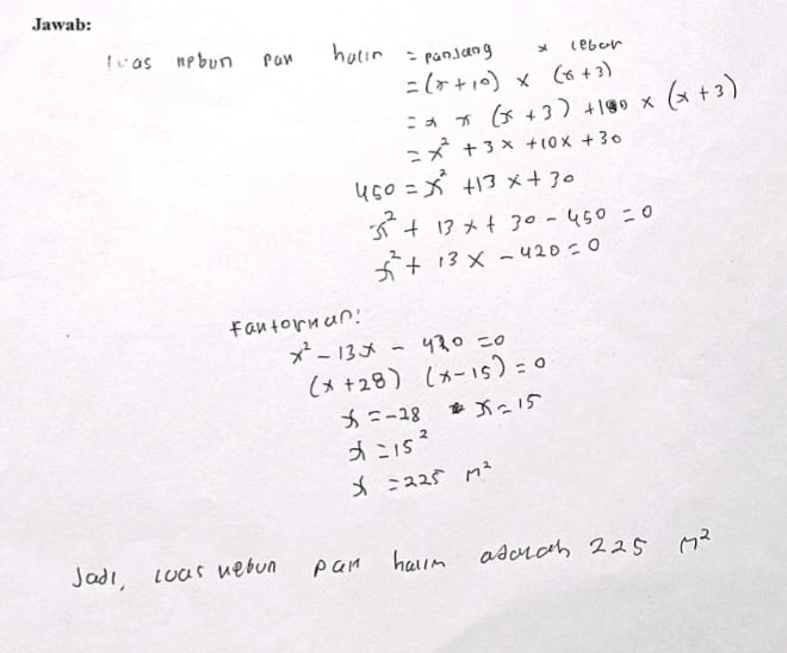 Jawab:
luas kebun pak halim = panjang × lebar
= (x+10) × (x+3)
= x × (x+3) + 10 × (x+3)
= x² + 3x + 10x + 30
450 = x² + 13x + 30
x² + 13x + 30 - 450 = 0
x² + 13x - 420 = 0
Faktorkan:
x² - 13x - 420 = 0
(x+28) (x-15) = 0
x = -28 x = 15
x = 15²
x = 225 m²
Jadi, luas kebun pak halim adalah 225 m²